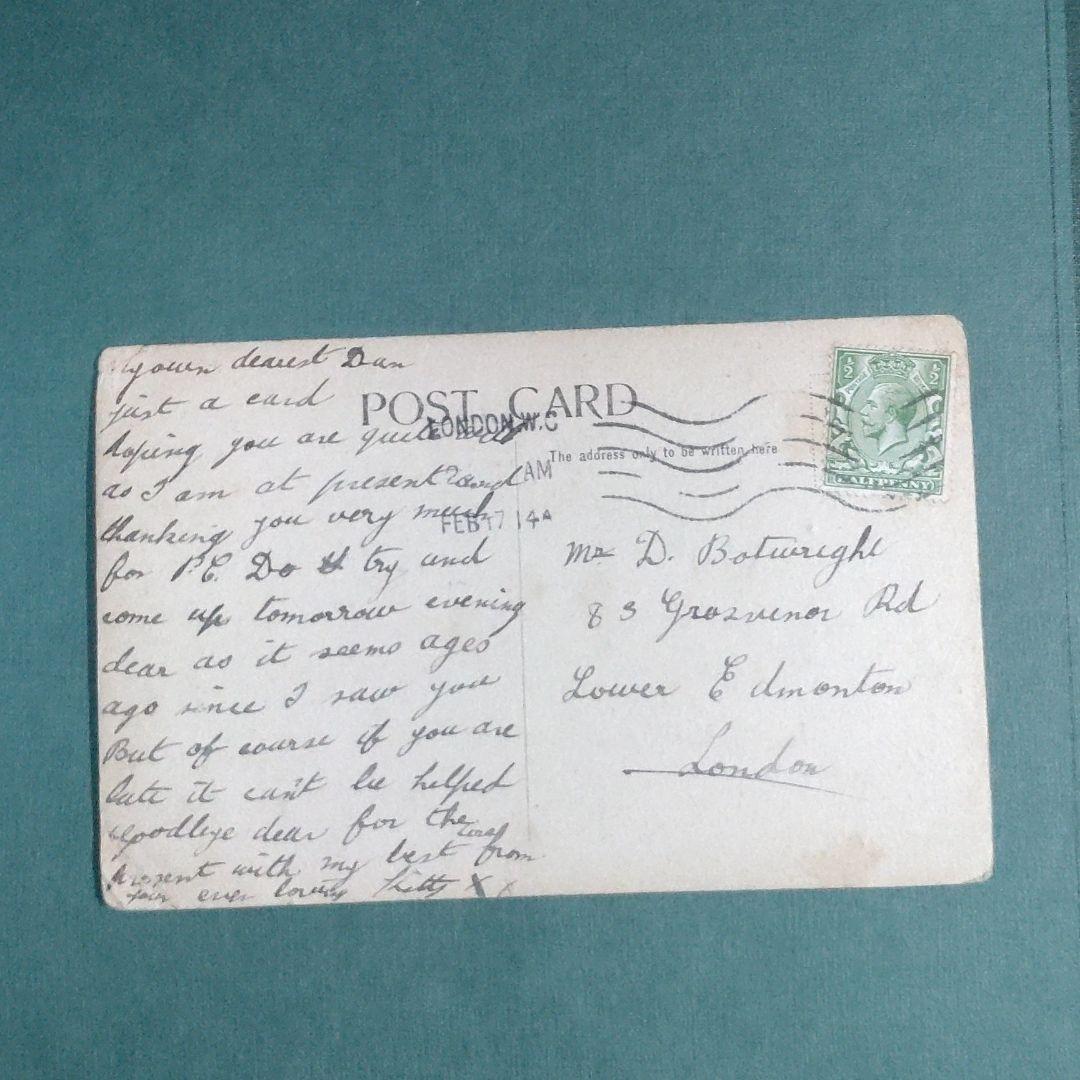 My own dearest Dan
just a card
hoping you are quite well
as I am at present and
thanking you very much
for P.C. Do try and
come up tomorrow evening
dear as it seems ages
ago since I saw you
But of course if you are
late it can't be helped
Goodbye dear for the
present with my best love from
your ever loving Kitty X X
POST CARD
The address only to be written here
LONDON.W.C
AM
FEB 17 14
½ ½
HALFPENNY
Mr D. Botwright
83 Grosvenor Rd
Lower Edmonton
London